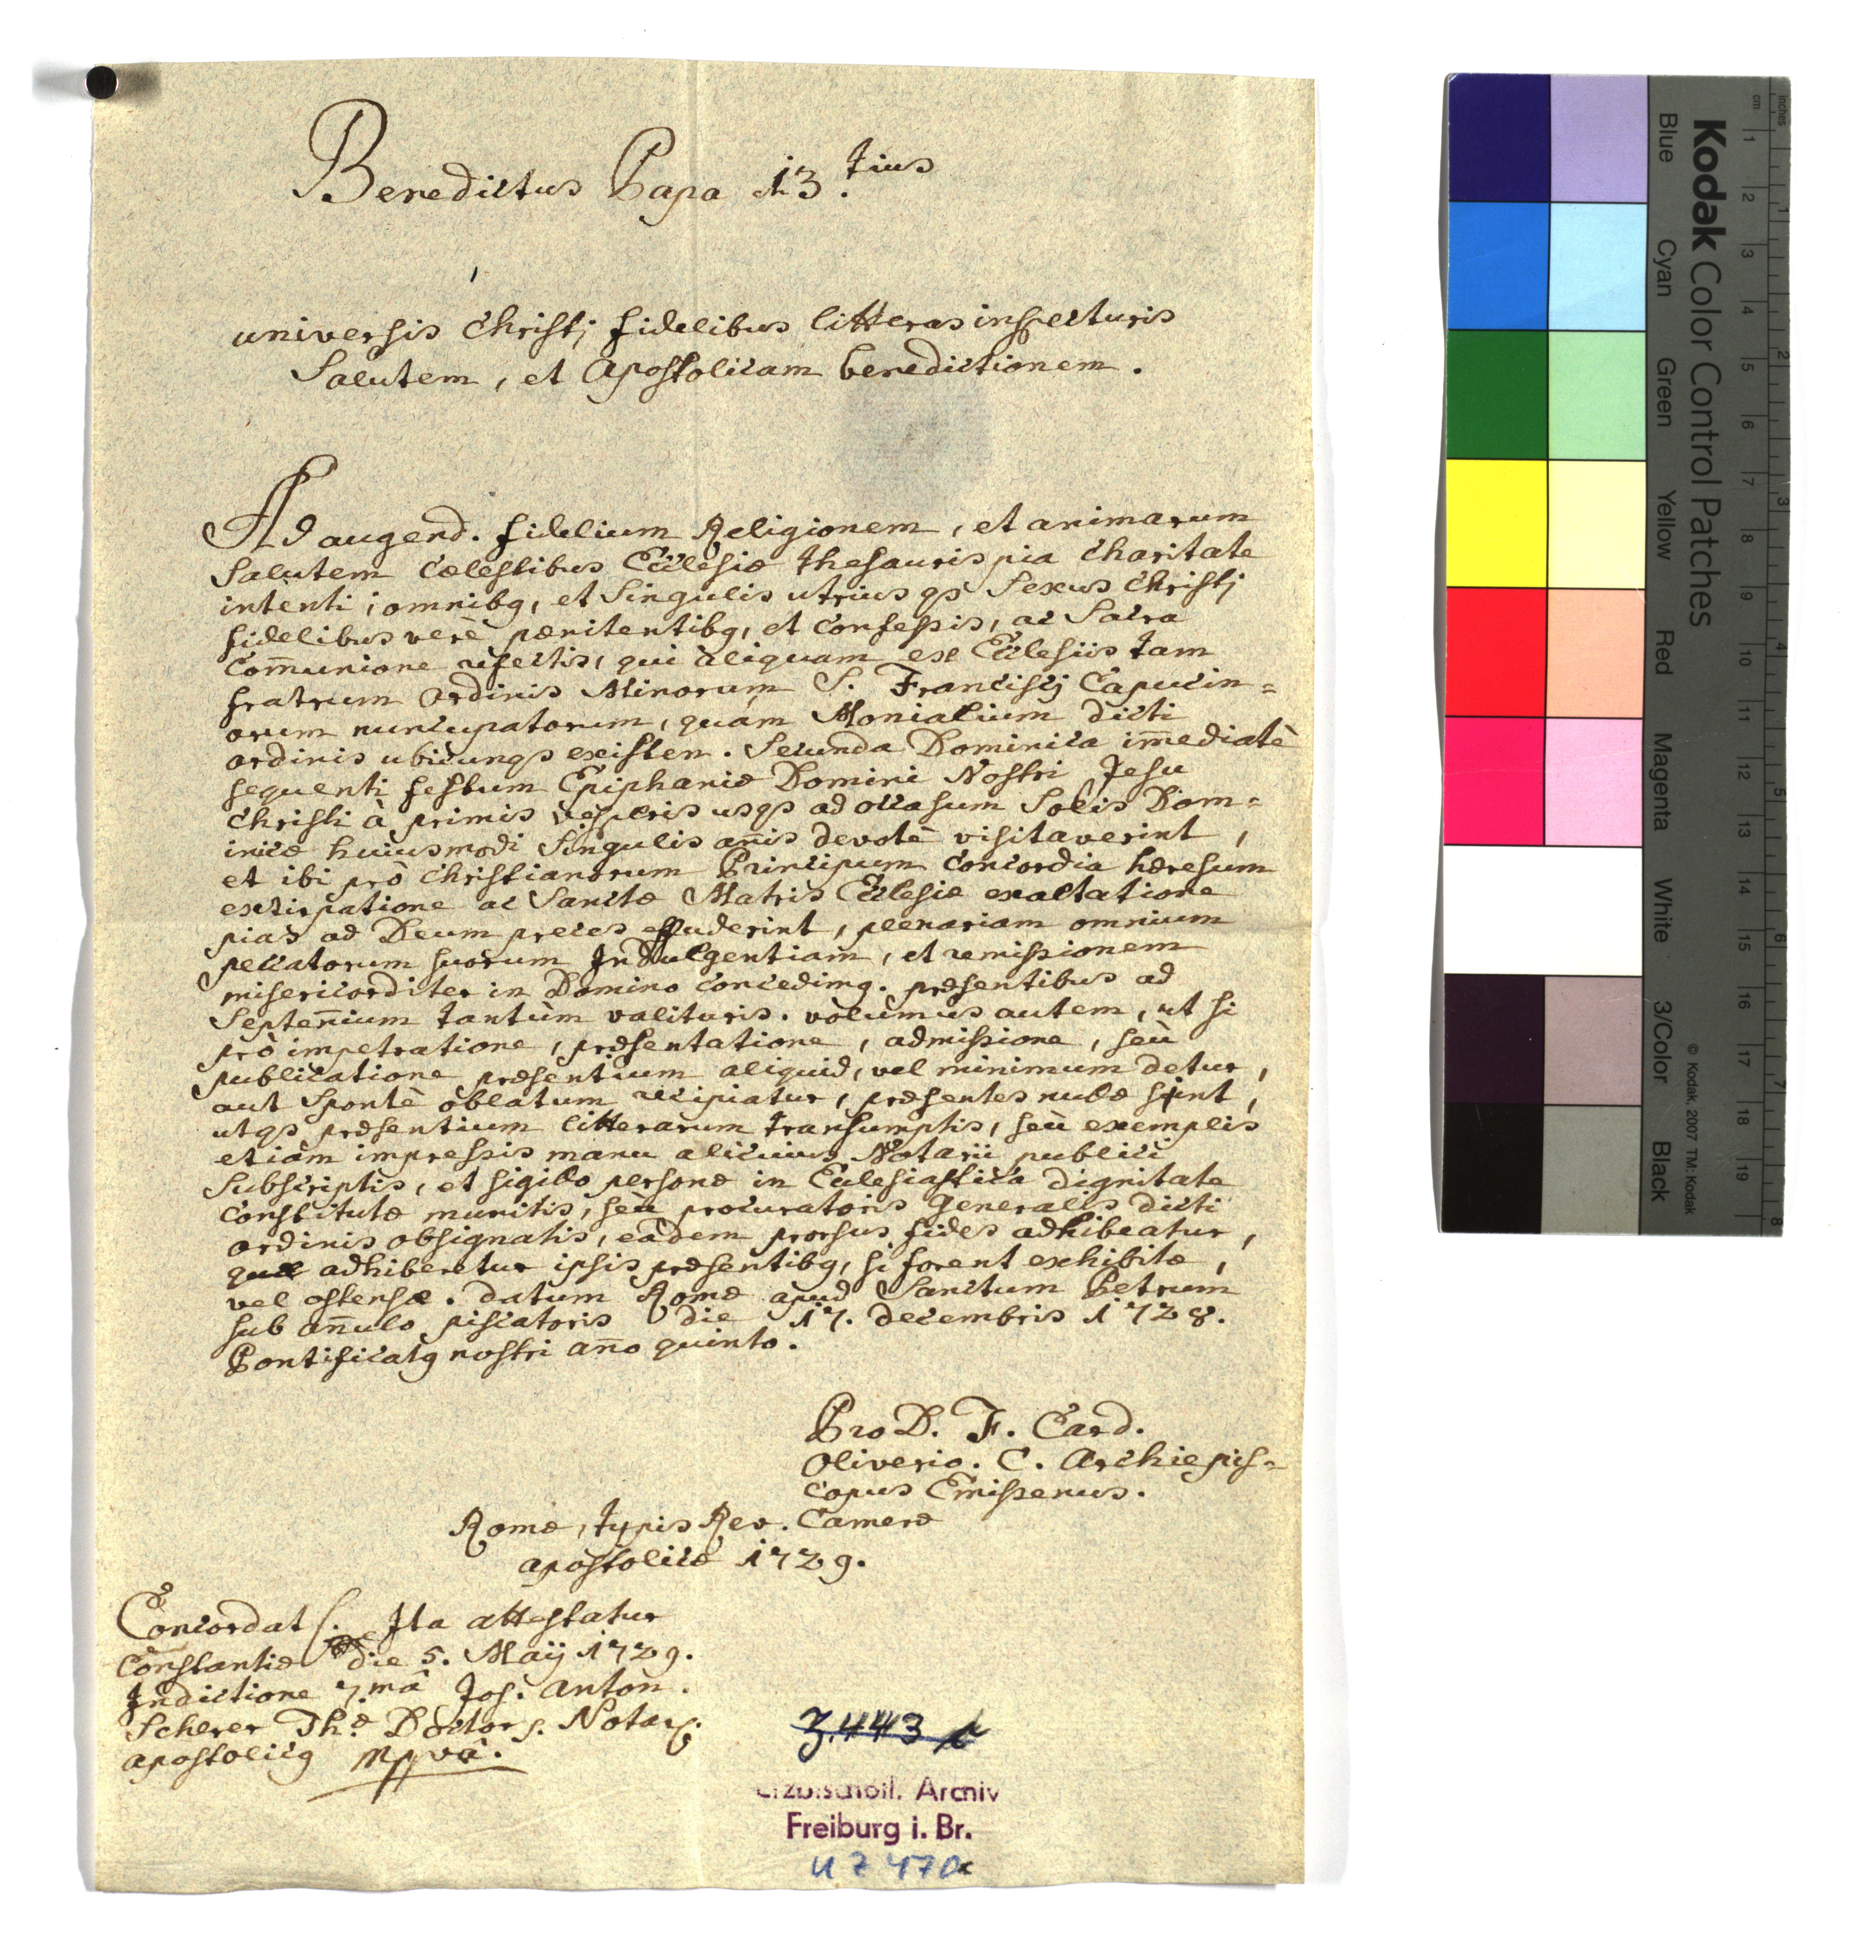 Benedictus Papa 13.tius
universis Christj fidelibus litteras inspecturis
Salutem, et Apostolicam benedictionem.
Ad augend. fidelium Religionem, et animarum
Salutem cælestibus Ecclesiæ thesauris pia charitate
intenti; omnibq, et Singulis utriusqs Sexus Christj
fidelibus verè pænitentibq, et confessis, ac Sacra
Com̄unione refectis, qui aliquam ex Ecclesiis tam
fratrum ordinis Minorum S. Franciscj Capucin=
orum nuncupatorum, quám Monialium dicti
ordinis ubicunqs existen. Secunda Dominica im̄ediatè
sequenti festum Epiphaniæ Domini Nostri Jesu
Christi à primis vesperis usqs ad occasum Solis Dom=
inicæ huiusmodi Singulis an̄is devotè visitaverint,
et ibi prò Christianorum Principum Concordia hæresum
extirpatione ac Sanctæ Matris Ecclesiæ exaltatione
pias ad Deum preces effuderint, plenariam omnium
peccatorum suorum Indulgentiam, et remissionem
misericorditer in Domino concedimq. præsentibus ad
Septen̄ium tantùm valituris. volumus autem, ut si
prò impetratione, præsentatione, admissione, seù
publicatione præsentium aliquid, vel minimum detur,
aut Spontè oblatum recipiatur, præsentes nullæ sint,
utqs præsentium litterarum transumptis, seù exemplis
etiàm impressis manu alicuius Notarii publici
Subscriptis, et sigillo personæ in Ecclesiastica dignitate
constitutæ munitis, seù procuratoris Generalis dicti
ordinis obsignatis, eàdem prorsus fides adhibeatur,
quæ adhiberetur ipsis præsentibq, si forent exhibitæ,
vel ostensæ. datum Romæ apud Sanctum Petrum
sub an̄ulo piscatoris die 17. decembris 1728.
Pontificatq nostri an̄o quinto.
Pro D. F. Card.
Oliverio. C. Archiepis=
copus Emissenus.
Romæ, typis Rev. Cameræ
apostolicæ 1729.
Concordat Ita attestatur
Constantiæ die 5. Maij 1729.
Indictione 7.mâ Jos. Anton.
Scherer Th.æ Doctor s. Notarq.
apostolicq mppvâ.
Z.443
Erzbischöfl. Archiv
Freiburg i. Br.
U Z 470c
Kodak Color Control Patches
Blue
Cyan
Green
Yellow
Red
Magenta
White
3/Color
Black
© Kodak, 2007 TM: Kodak
cm 1 2 3 4 5 6 7 8 9 10 11 12 13 14 15 16 17 18 19
inches 1 2 3 4 5 6 7 8